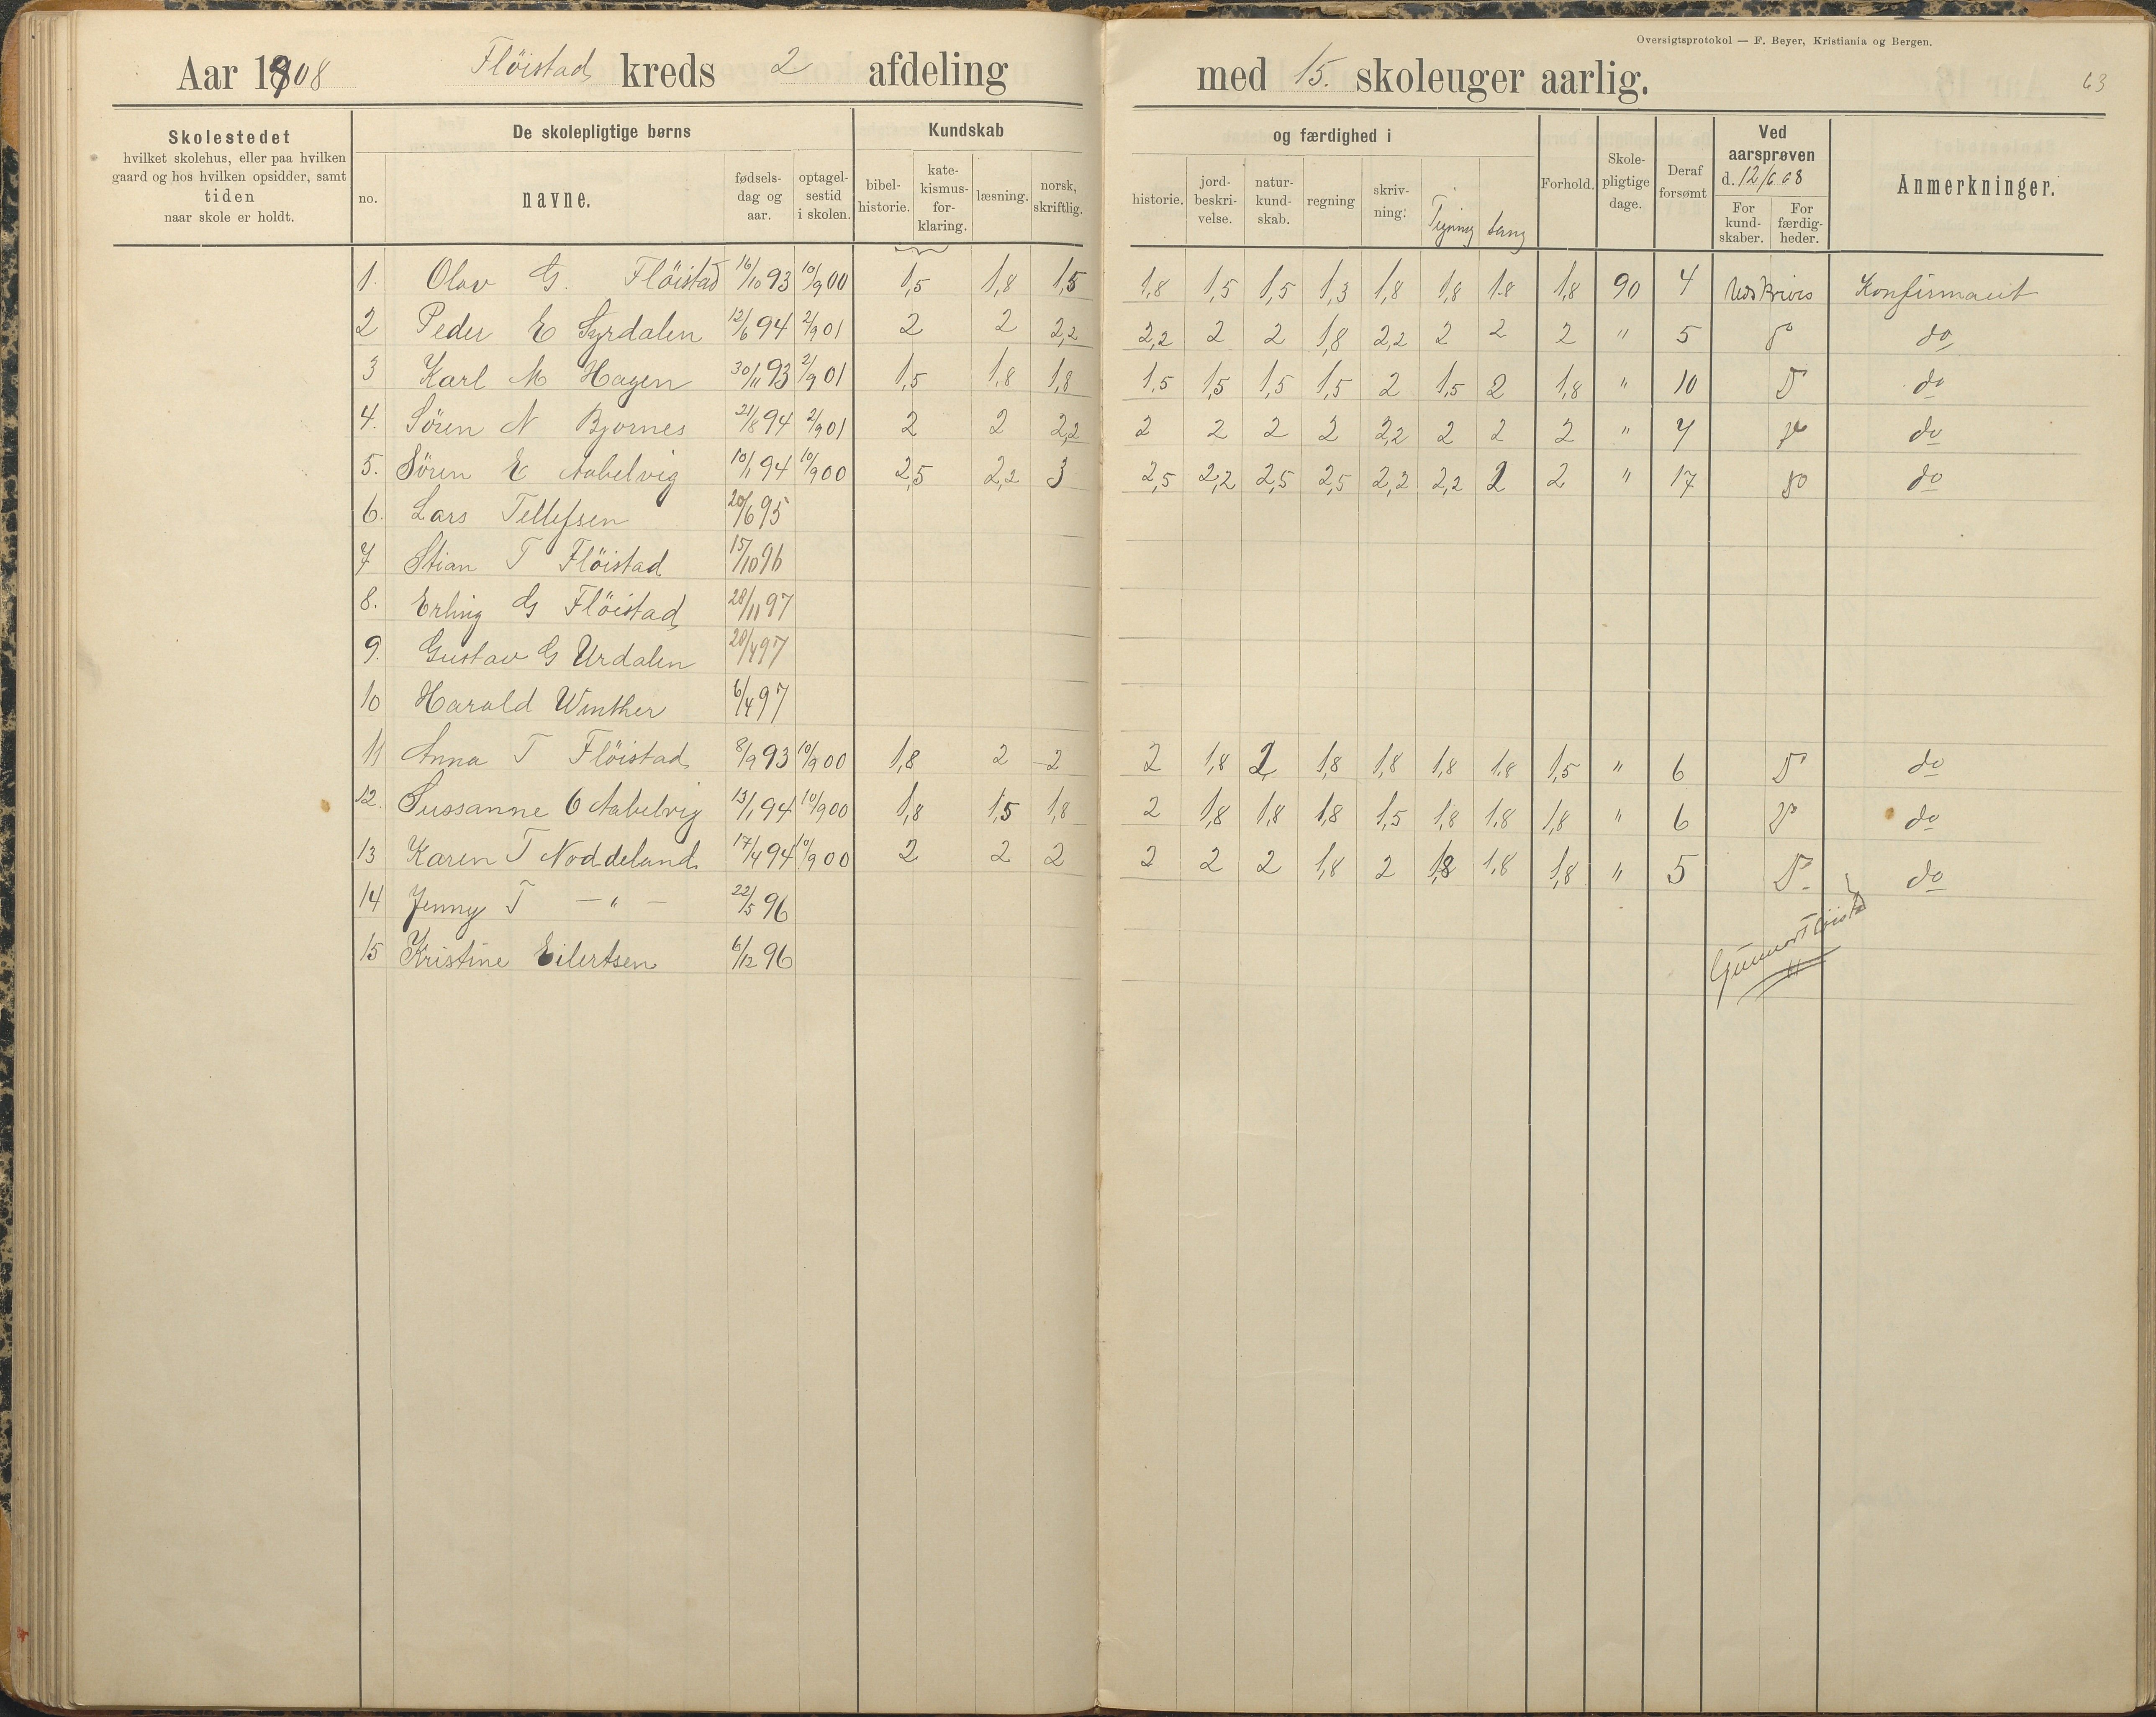 Oversigtsprotokol — F. Beyer, Kristiania og Bergen.
Aar 1908 Flöistad kreds 2 afdeling med 15. skoleuger aarlig. 63
Skolestedet
hvilket skolehus, eller paa hvilken
gaard og hos hvilken opsidder, samt
tiden
naar skole er holdt.
De skolepligtige børns
no.
navne.
fødsels-
dag og
aar.
optagel-
sestid
i skolen.
Kundskab
bibel-
historie.
kate-
kismus-
for-
klaring.
læsning.
norsk,
skriftlig.
og færdighed i
historie.
jord-
beskri-
velse.
natur-
kund-
skab.
regning
skriv-
ning.
Tegning
Sang
Forhold.
Skole-
pligtige
dage.
Deraf
forsømt
Ved
aarsprøven
d. 12/6 08
For
kund-
skaber.
For
færdig-
heder.
Anmerkninger.
1. Olav G. Flöistad 16/10 93 10/9 00 1,5 1,8 1,5 1,8 1,5 1,5 1,3 1,8 1,8 1.8 1,8 90 4 Udskrives Konfirmant
2 Peder E Syrdalen 12/6 94 2/9 01 2 2 2,2 2,2 2 2 1,8 2,2 2 2 2 " 5 do do
3 Karl M Hagen 30/11 93 2/9 01 1,5 1,8 1,8 1,5 1,5 1,5 1,5 2 1,5 2 1,8 " 10 do do
4. Sören N Bjornes 21/8 94 2/9 01 2 2 2,2 2 2 2 2 2,2 2 2 2 " 7 do do
5. Sören E Aabelvig 10/1 94 10/9 00 2,5 2,2 3 2,5 2,2 2,5 2,5 2,2 2,2 2 2 " 17 do do
6. Lars Tellefsen 20/6 95
7 Stian T Flöistad 15/10 96
8. Erling G Flöistad 28/11 97
9. Gustav G Urdalen 20/4 97
10 Harald Winther 6/4 97
11 Anna T Flöistad 8/9 93 10/9 00 1,8 2 2 2 1,8 2 1,8 1,8 1,8 1,8 1,5 " 6 do do
12. Sussanne O Aabelvig 13/1 94 10/9 00 1,8 1,5 1,8 2 1,8 1,8 1,8 1,5 1,8 1.8 1,8 " 6 do do
13 Karen T Noddeland 17/4 94 10/9 00 2 2 2 2 2 2 1,8 2 1,8 1,8 1,8 " 5 do do
14 Jenny T — " — 22/5 96
15 Kristine Eilertsen 6/12 96
Gunnar Flöistad